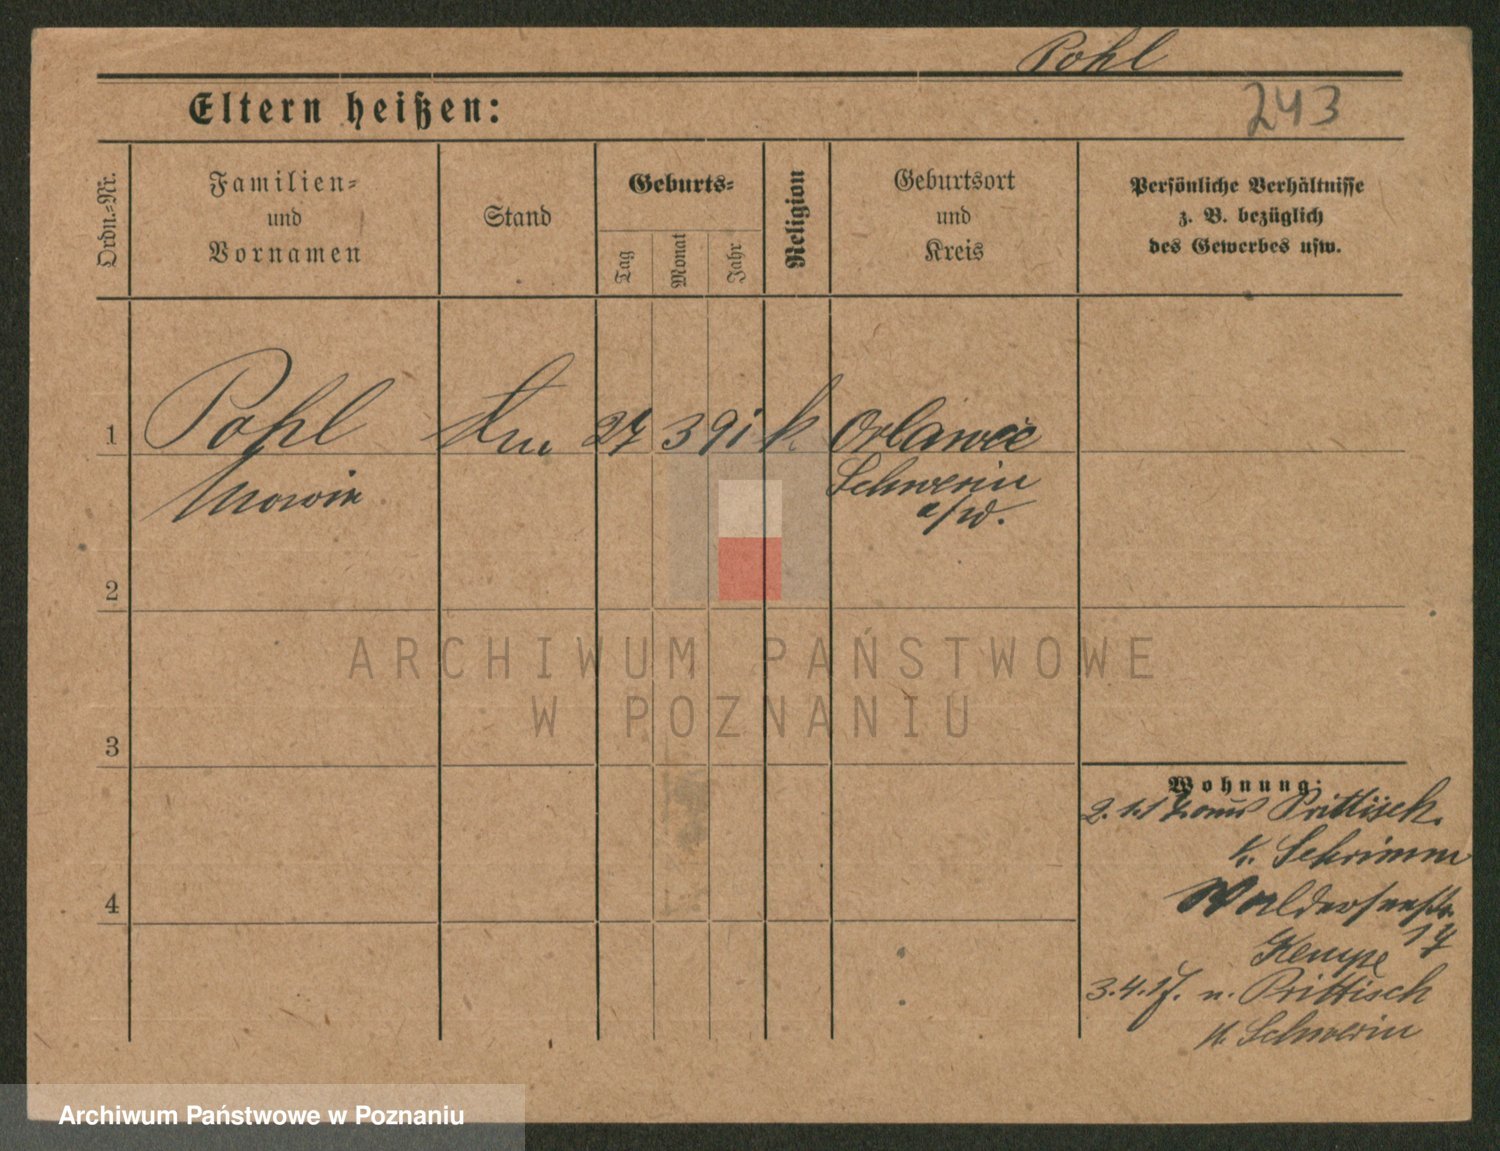 Pohl
243
Eltern heißen:
Ordn.-Nr.
Familien-
und
Vornamen
Stand
Geburts-
Tag
Monat
Jahr
Religion
Geburtsort
und
Kreis
Persönliche Verhältnisse
z. B. bezüglich
des Gewerbes usw.
1
Pohl
27 3 91 k
Schwerin
a/W.
2
3
4
Wohnung:
2.1.17 aus Prittisch
K. Schrimm
Walderseestr.
17
Kempe
3.4.17. n. Prittisch
K. Schwerin
ARCHIWUM PAŃSTWOWE
W POZNANIU
Archiwum Państwowe w Poznaniu